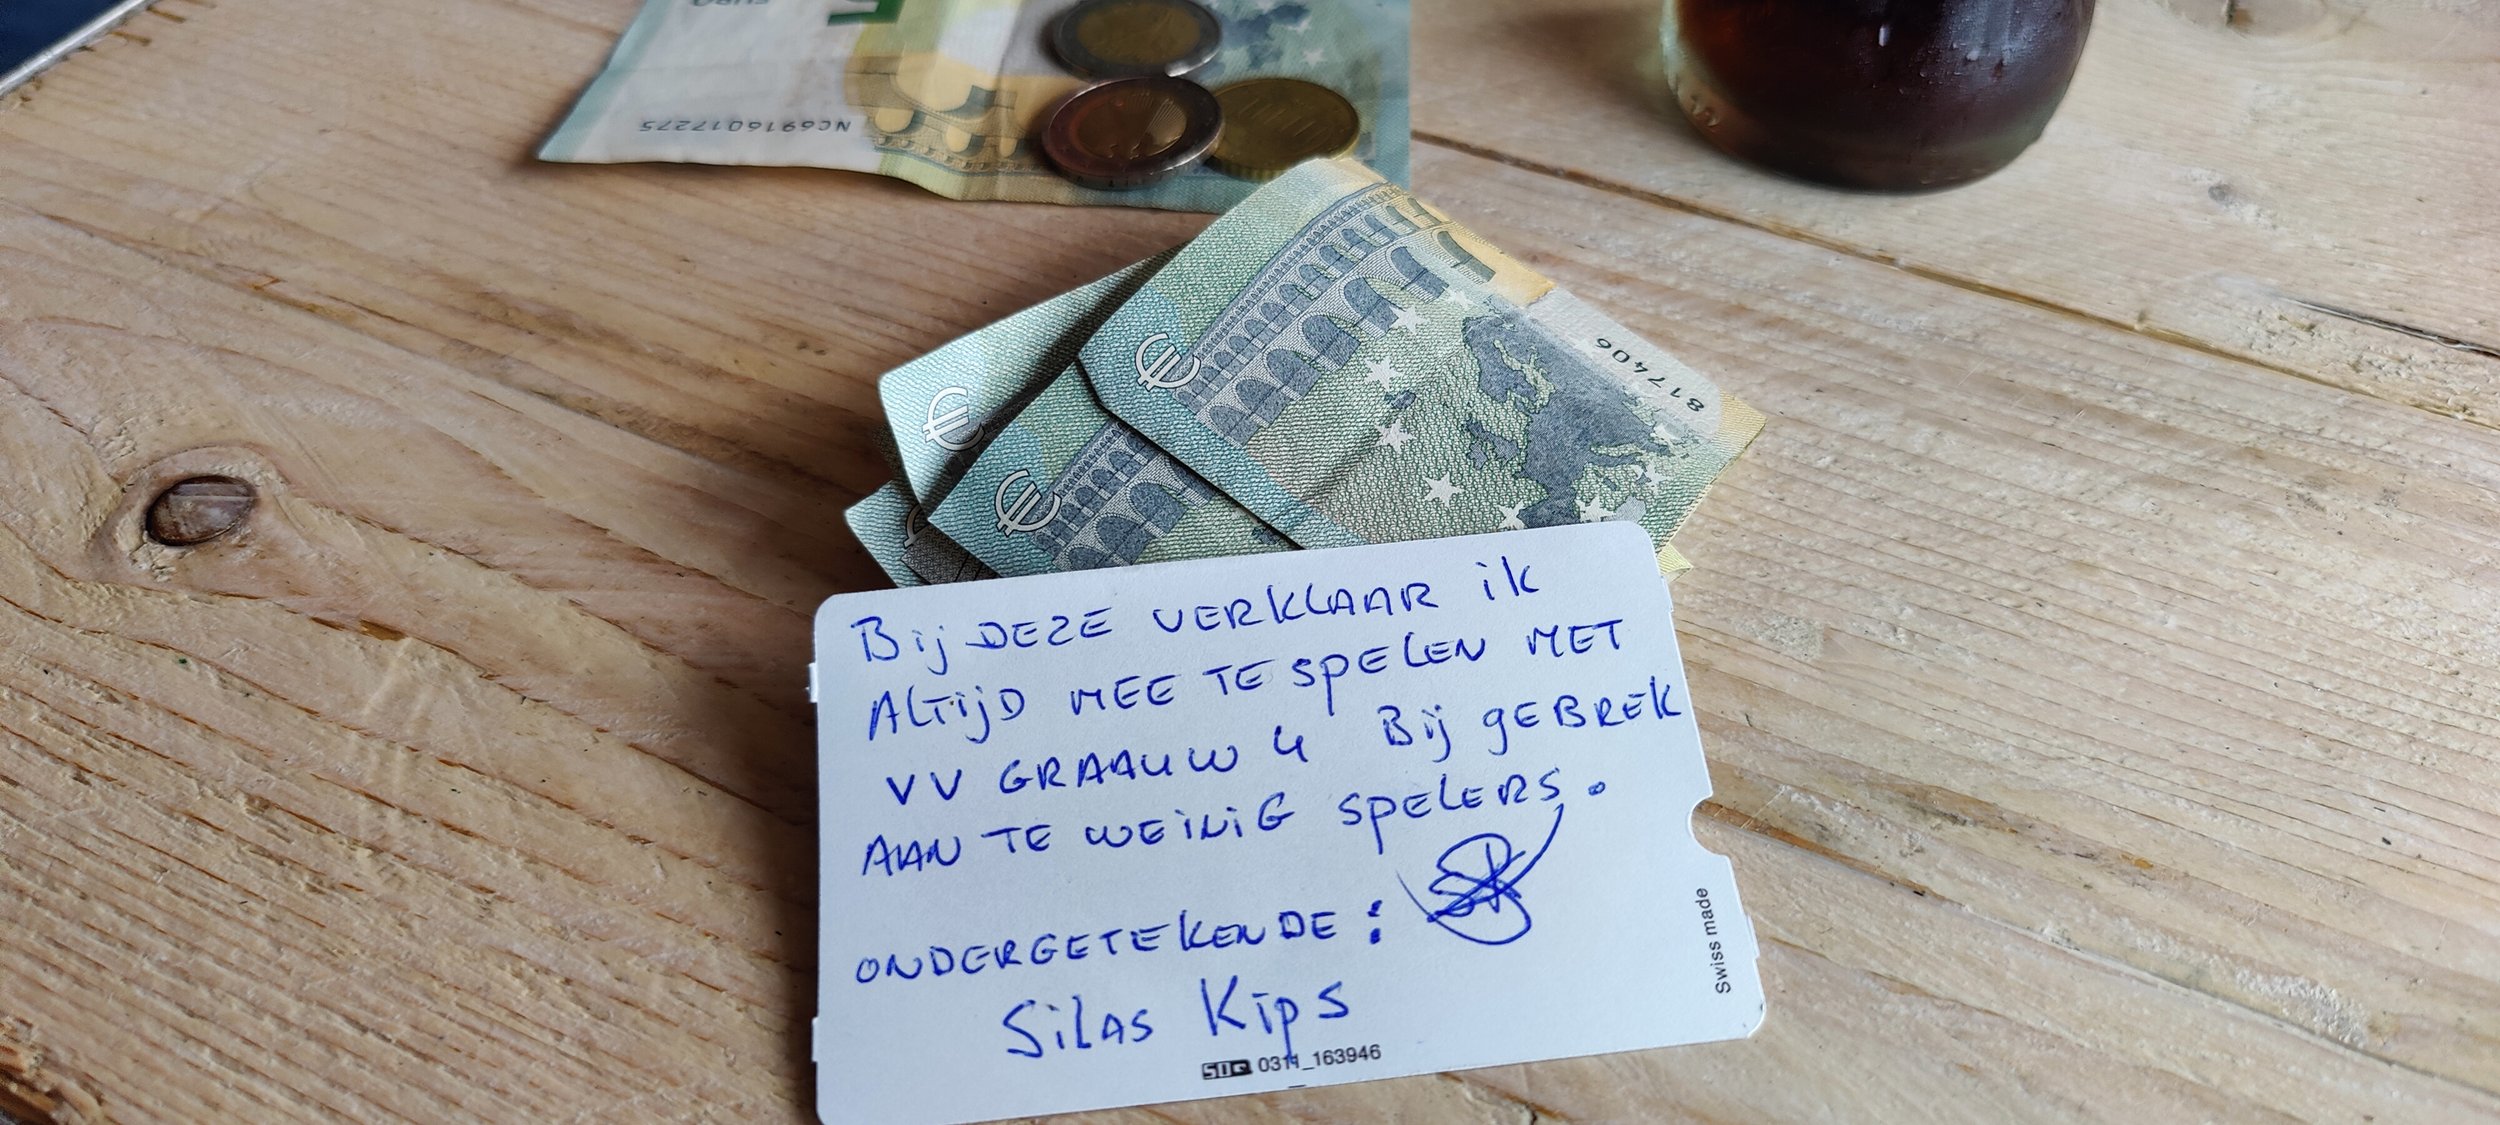 EURO
5
NC6916017275
817406
Bij DEZE VERKLAAR ik
ALTijD MEE TE SPELEN MET
VV GRAAUW 4 Bij gEBREK
AAN TE WEINiG SPELERS.
ONDERGETEKENDE:
SiLAS Kips
Swiss made
SDG 0311_163946